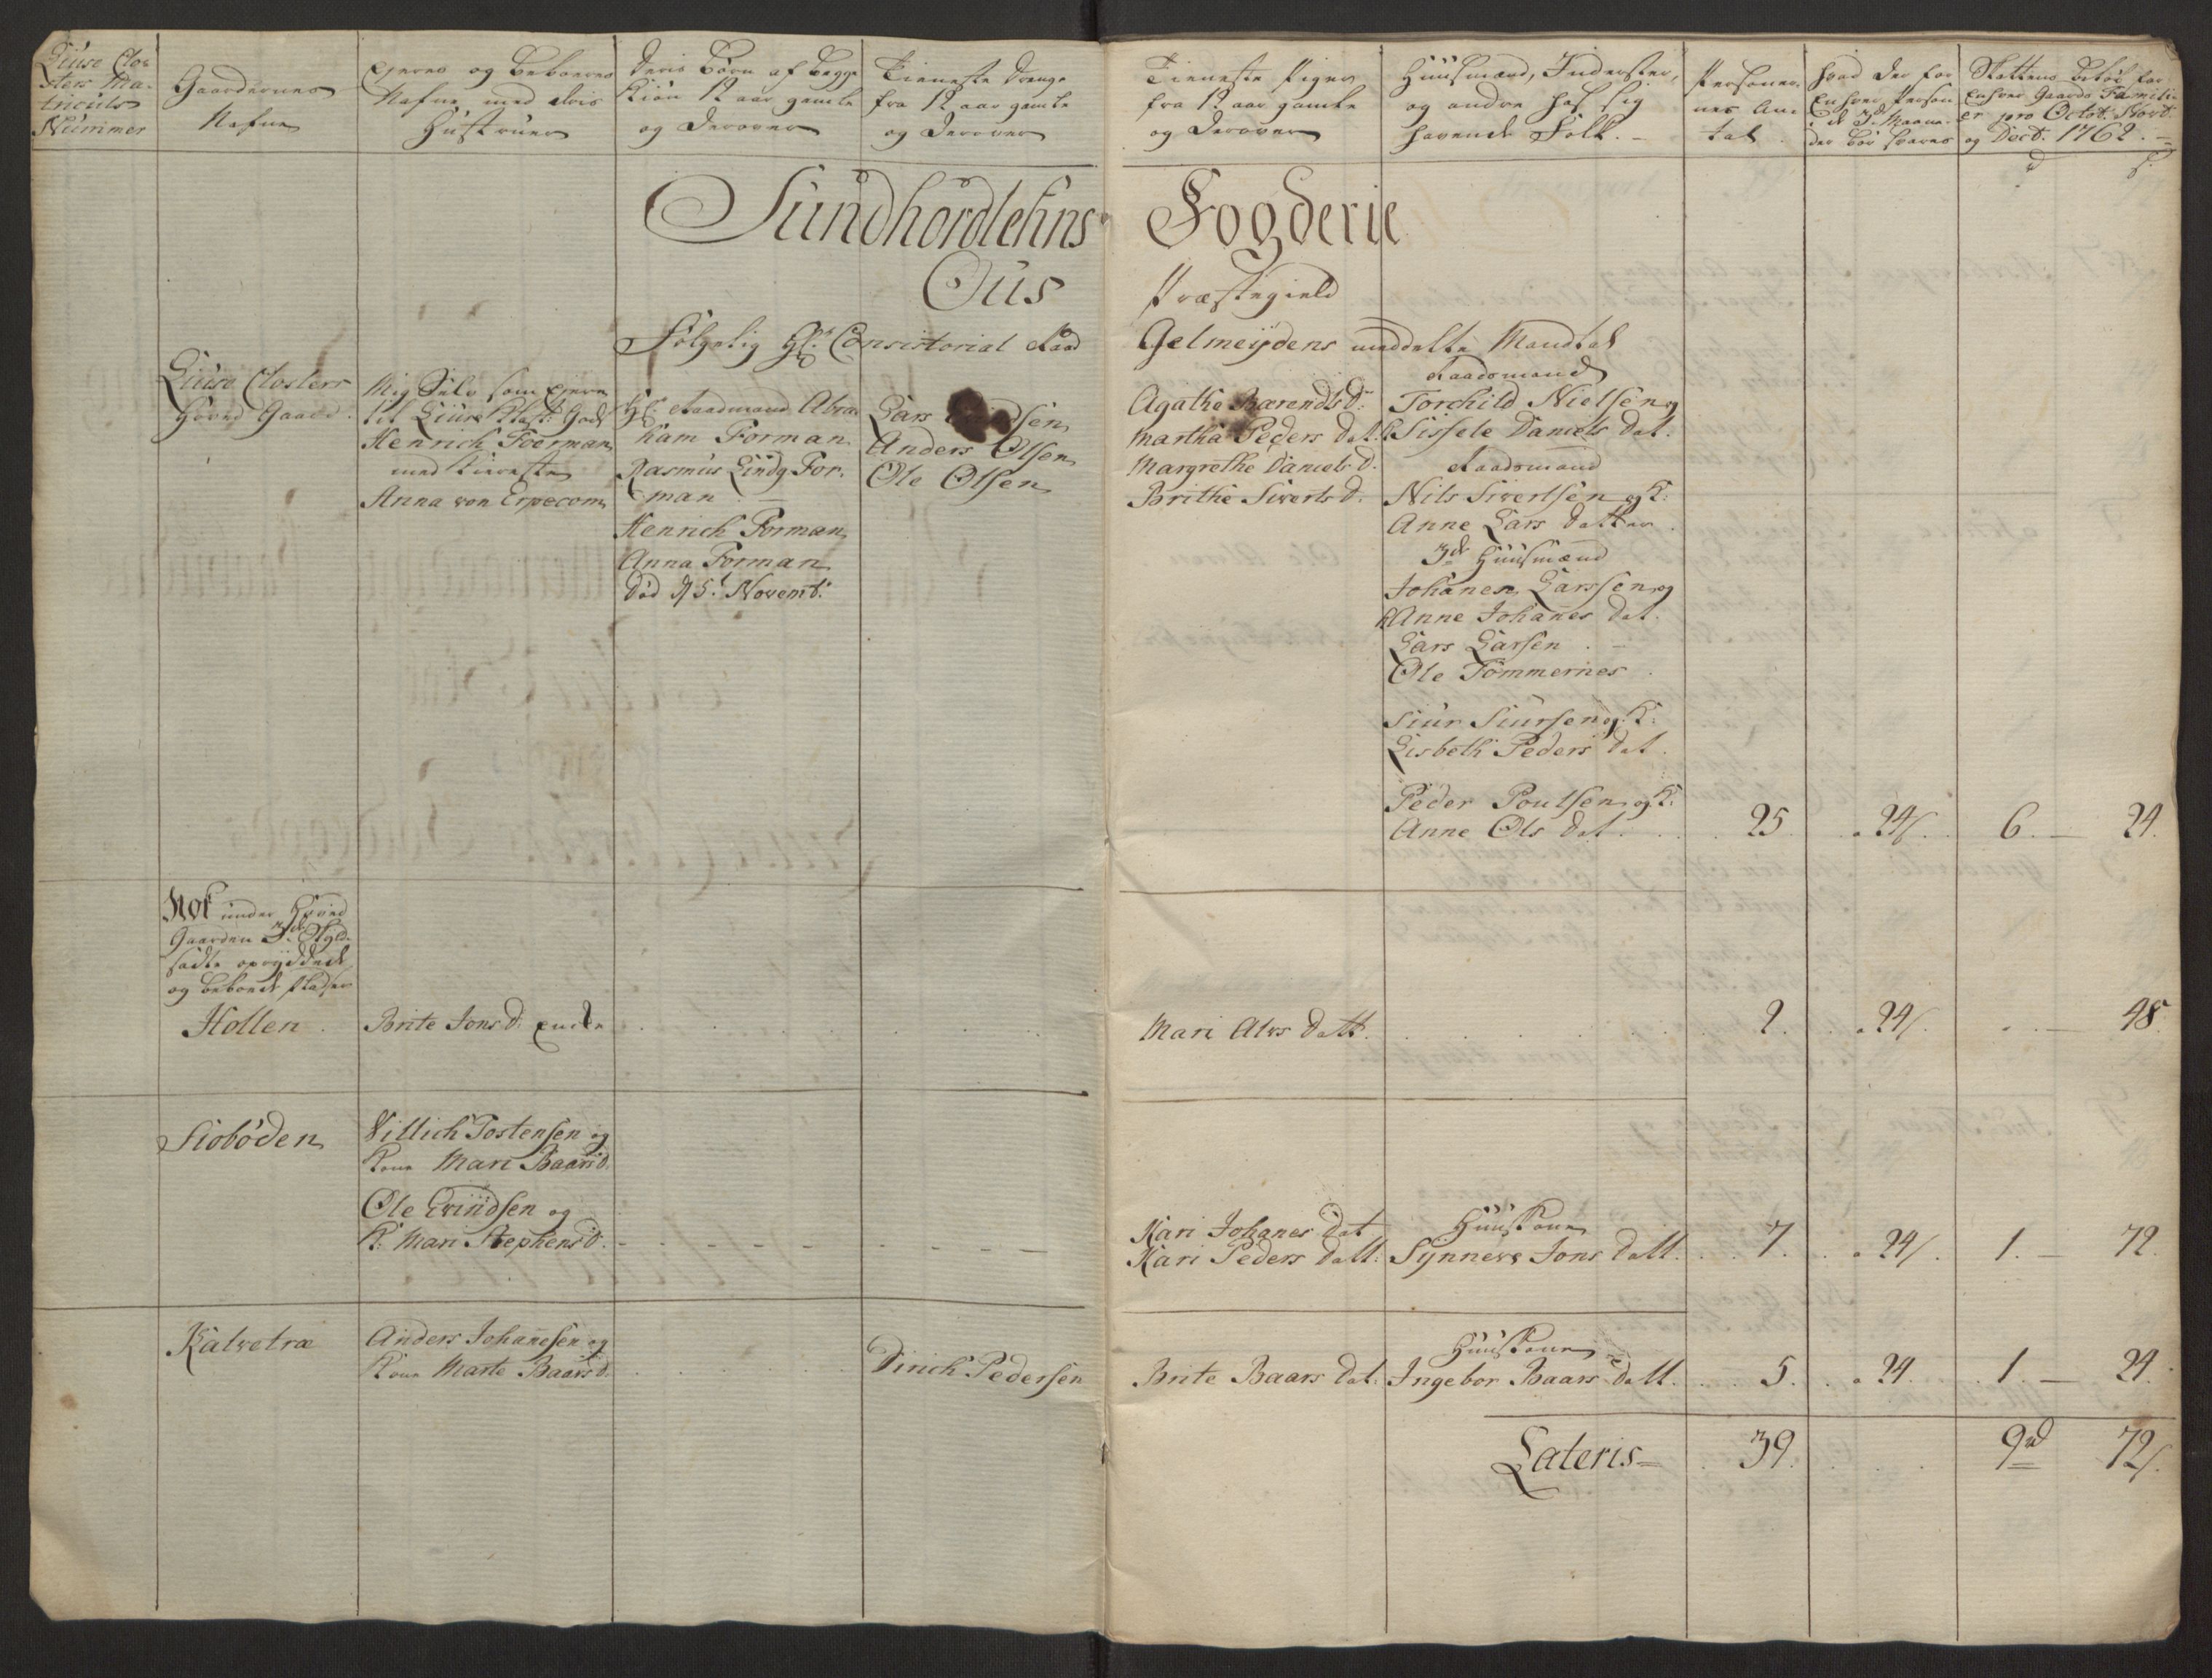 Liuse Clo-
sters Ma-
triculs
Nummer
Gaardernes
Nafne
Ejeres og Beboeres
Nafne med deris
Hustruer
Deris Børn af begge
Kiøn 12 aar gamle
og derover
Tieneste Drenge
fra 12 aar gamle
og derover
Tieneste Piger
fra 12 aar gamle
og derover
Huusmænd, Inderster,
og andre hos sig
havende Folk. -
Personer-
nes An-
tal
hvad der for
Enhver Person
i de 3de Maane-
der bør svares
Skattens beløb for
Enhver Gaards Famili-
er pro Octob. Novb.
og Decb. 1762. -
d s.
Sundhordlehns Fogderie
Ous Præstegield
Følgelig Hr. Consistorial Raad Gelmeijdens meddelte Mandtal
Liuse Closters
Hoved Gaard.
Mig Selv som Ejere
til Liuse Clost: Gods
Henrich Foerman
med Kiereste
Anna von Erpecom
Hr. Raadmand Abra
ham Forman
Rasmus Lindg For-
man
Henrich Forman
Anna Forman
død d 5t Novemb:
Lars
Anders Olsen
Ole Olsen
Agathe Barendts D:
Martha Peders Dat.
Margrethe Daniels D.
Brithe Siverts D.
Raadsmand
Torchild Nielsen og
K Sissele Daniels Dat.
Raadsmand
Nils Sivertsen og K:
Anne Lars Datter
3de Huusmænd
Johanes Larssen og
K Anne Johanes Dat.
Lars Larsen . -
Ole Tømmernes .
Siur Siursen og K:
Lisbeth Peders Dat.
Peder Poulsen og K:
Anne Ols Dat. . . 25 . 24s. 6. — 24.
Nok under Hoved
Gaarden 3de Skyld-
satte oprÿddede
og beboede Pladser
Hollen .
Brite Jons D. Encke
Mari Alvs Datt. . . 2. . 24s. . — 48.
Siobøden
Villich Tostensen og
Kone Mari Baars D.
Ole Eriindsen og
K: Mari Stephens D.
Kari Johanes Dat
Kari Peders Datt:
Huuskone
Synneve Jons Datt. . 7. . 24s. 1. — 72.
Kalvetræ
Anders Johanesen og
Kone Marte Baars D.
Dirich Pedersen
Brite Baars Dat.
Huuskone
Ingebor Baars Datt. . 5. . 24. . 1. — 24.
Lateris= 39. 9rd 72s.